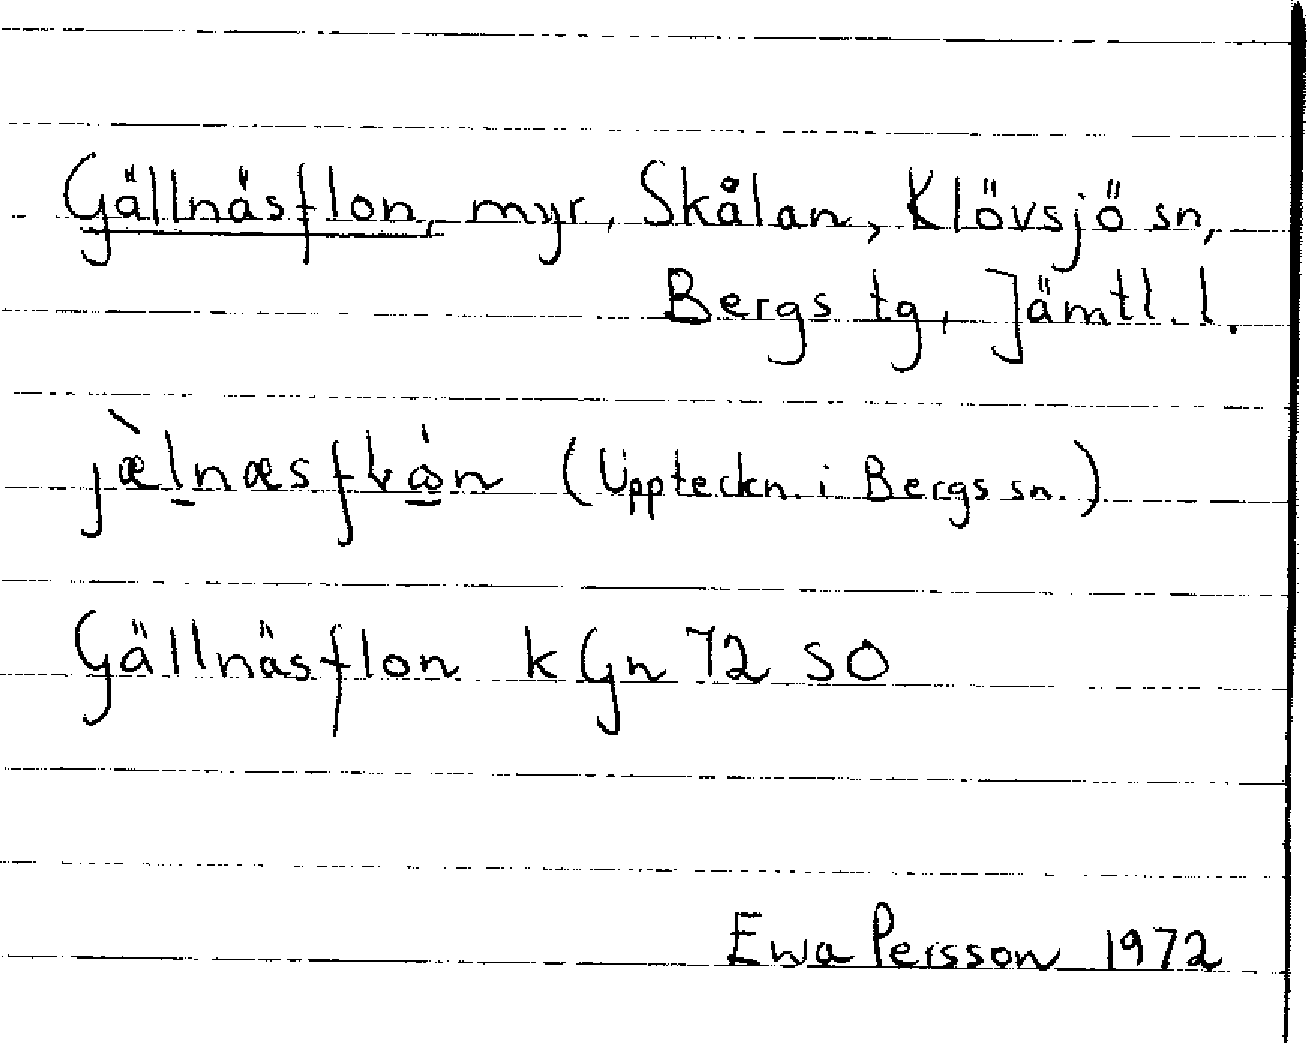 Gällnäsflon, myr, Skålan, Klövsjö sn,
Bergs tg, Jämtl. l.
jæ̀l̠næsfɫώ̠n (Uppteckn. i Bergs sn.)
Gällnäsflon kGn 72 SO
Ewa Persson 1972